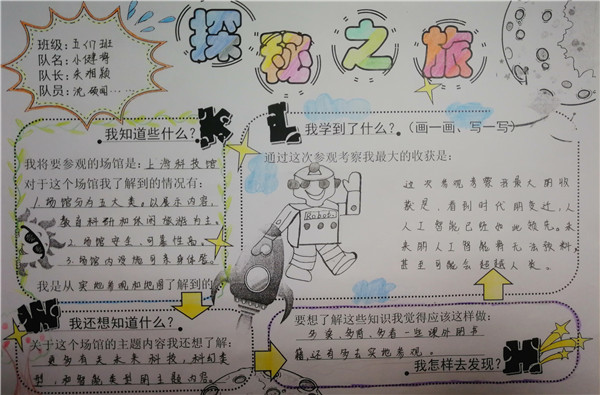 探秘之旅
班级:五(1)班
队名:小健将
队长:朱相颖
队员:沈颂围……
我知道些什么?
我将要参观的场馆是:上海科技馆
对于这个场馆我了解到的情况有:
1.场馆分为五大类,以展示内容、
教育科研和休闲旅游为主。
2.场馆守是,可靠性高。
3.场馆内设施可亲身体验。
我是从实地
地图了解到的
我学到了什么?(画一画、写一写)
通过这次参观考察我最大的收获是:
Robot
这次参观考察我最大的收
获是,看到时代的变迁,人
工智能已经如此领先。未
来的人工智能将无法预料,
甚至可能会超越人类。
我还想知道什么?
关于这个场馆的主题内容我还想了解:
更多有关未来科技,科幻类
型,和智能类型的主题内容。
要想了解这些知识我觉得应该这样做:
多读、多问、多看一些课外图书
籍,还有多去实地参观。
我怎样去发现?